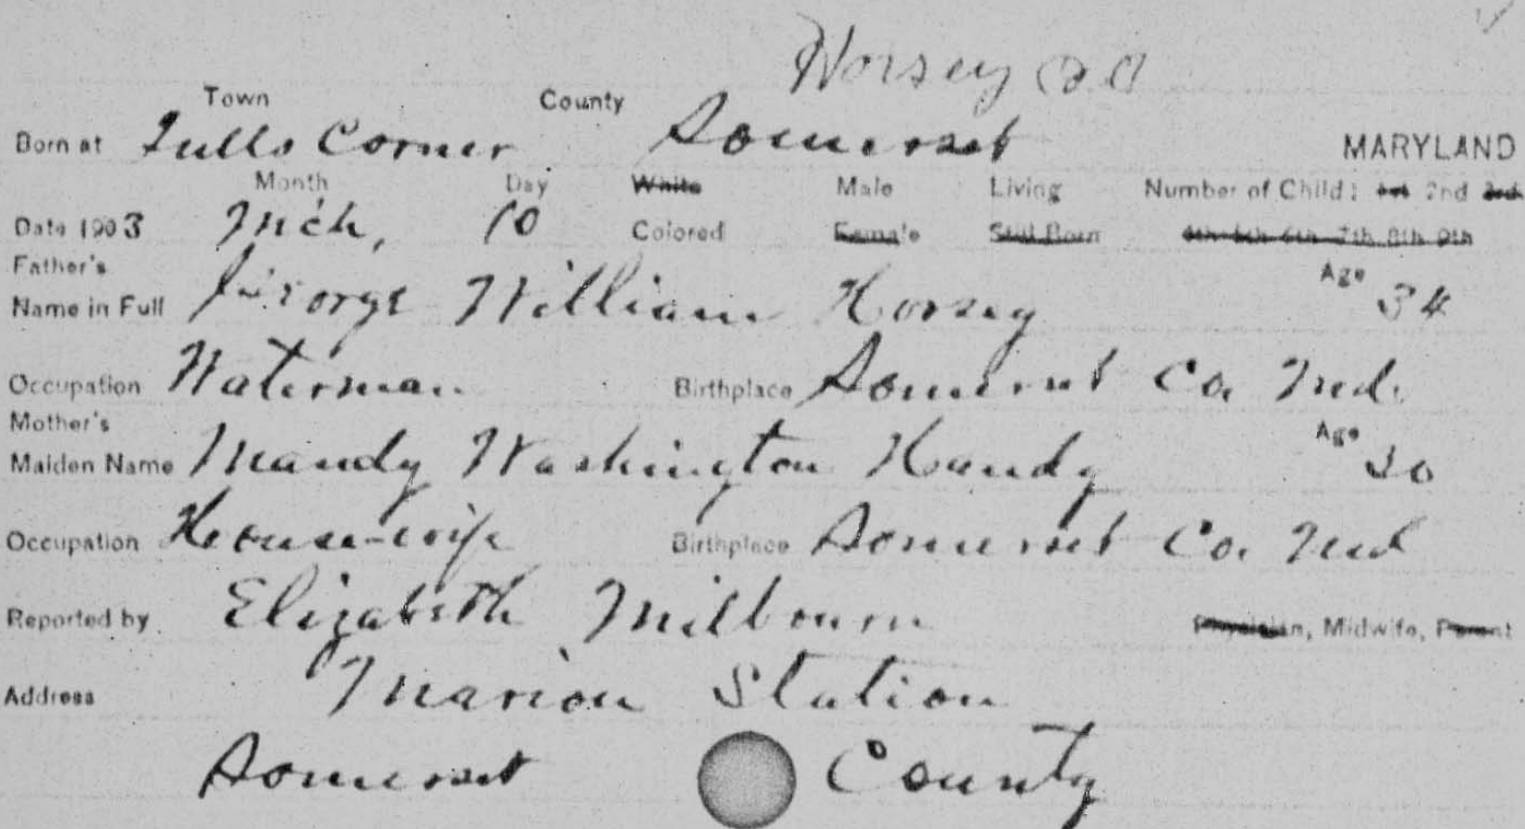 Horsey
Town County
Born at Tulls Corner Somerset MARYLAND
Month Day White Male Living Number of Child: 1st 2nd 3rd
Date 1903 Mch, 10 Colored Female Still Born 4th 5th 6th 7th 8th 9th
Father's Age
Name in Full George William Horsey 34
Occupation Waterman Birthplace Somerset Co. Md.
Mother's Age
Maiden Name Mandy Washington Handy 30
Occupation House-wife Birthplace Somerset Co. Md
Reported by Elizabeth Milbourn Physician, Midwife, Parent
Address Marion Station
Somerset County